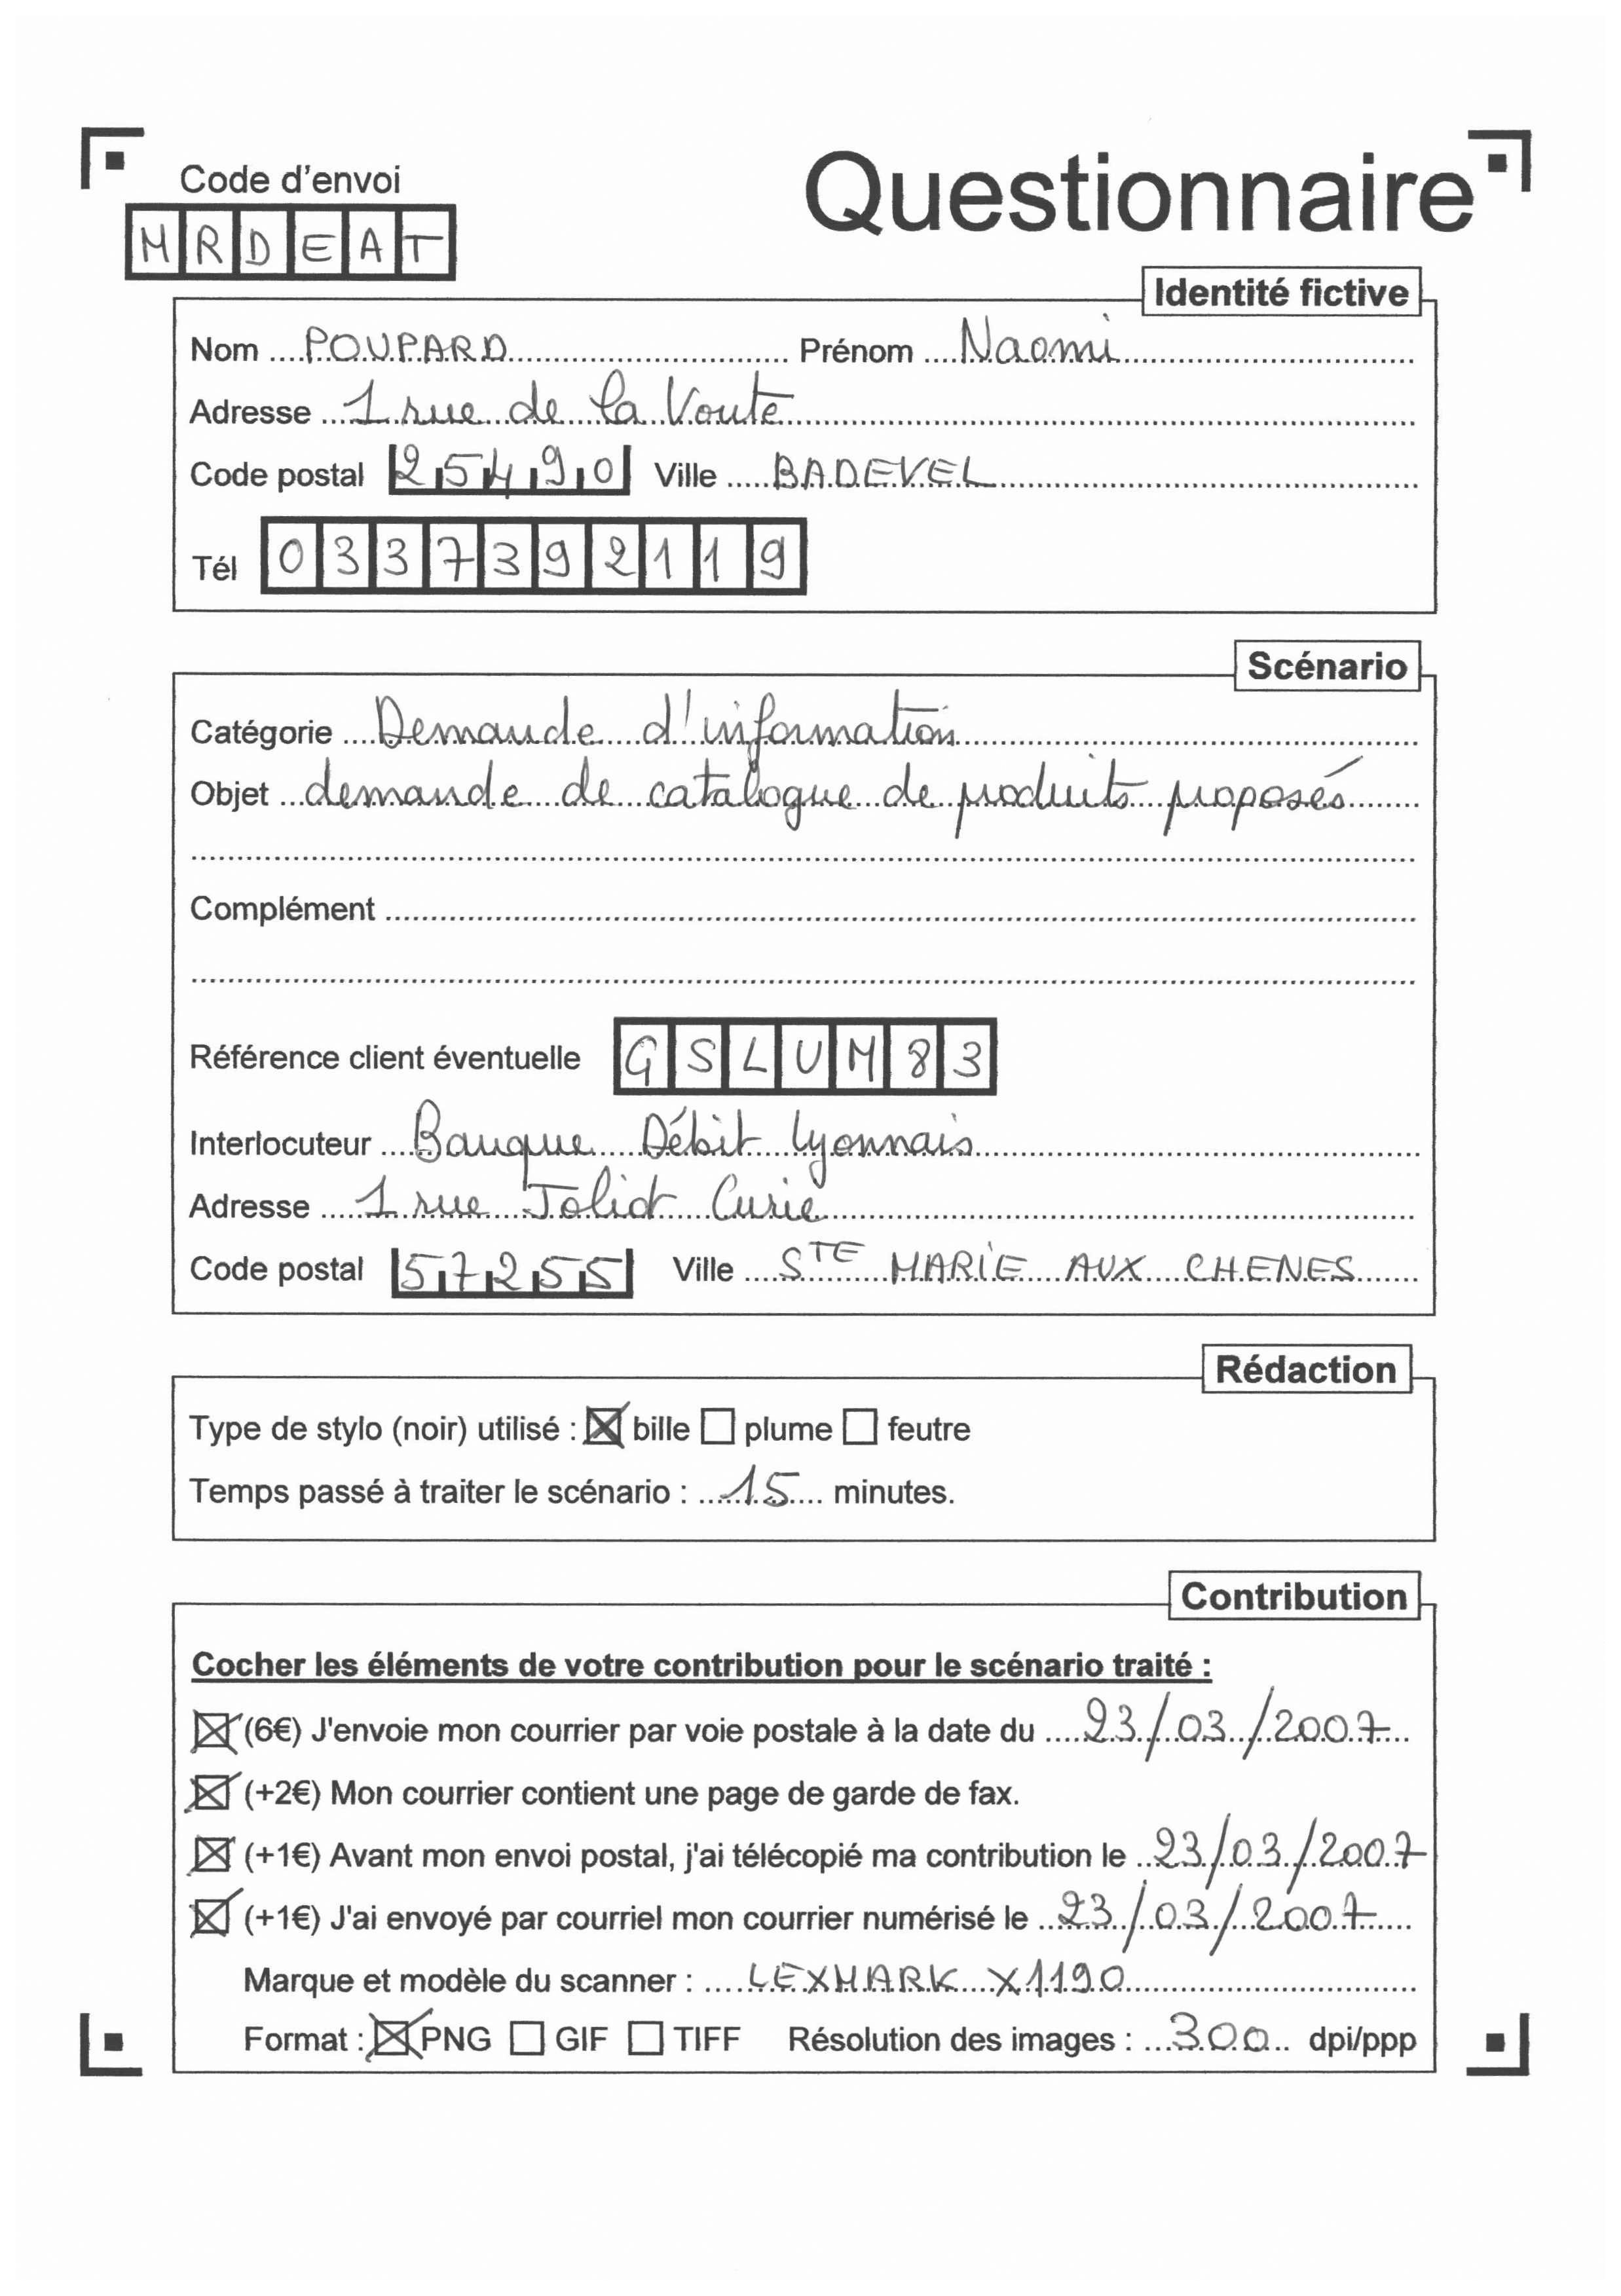 Code d'envoi
Questionnaire
MRDEAT
Identité fictive
Nom POUPARD Prénom Naomi
Adresse 1 rue de la Voute
Code postal 25490 Ville BADEVEL
Tél 0337392119
Scénario
Catégorie Demande d'information
Objet demande de catalogue de produits proposés
Complément
Référence client éventuelle GSLUM83
Interlocuteur Banque Débit Lyonnais
Adresse 1 rue Joliot Curie
Code postal 57255 Ville STE MARIE AUX CHENES
Rédaction
Type de stylo (noir) utilisé : bille plume feutre
Temps passé à traiter le scénario : 15 minutes.
Contribution
Cocher les éléments de votre contribution pour le scénario traité :
(6€) J'envoie mon courrier par voie postale à la date du 23/03/2007
(+2€) Mon courrier contient une page de garde de fax.
(+1€) Avant mon envoi postal, j'ai télécopié ma contribution le 23/03/2007
(+1€) J'ai envoyé par courriel mon courrier numérisé le 23/03/2007
Marque et modèle du scanner : LEXMARK X1190
Format : PNG GIF TIFF Résolution des images : 300 dpi/ppp